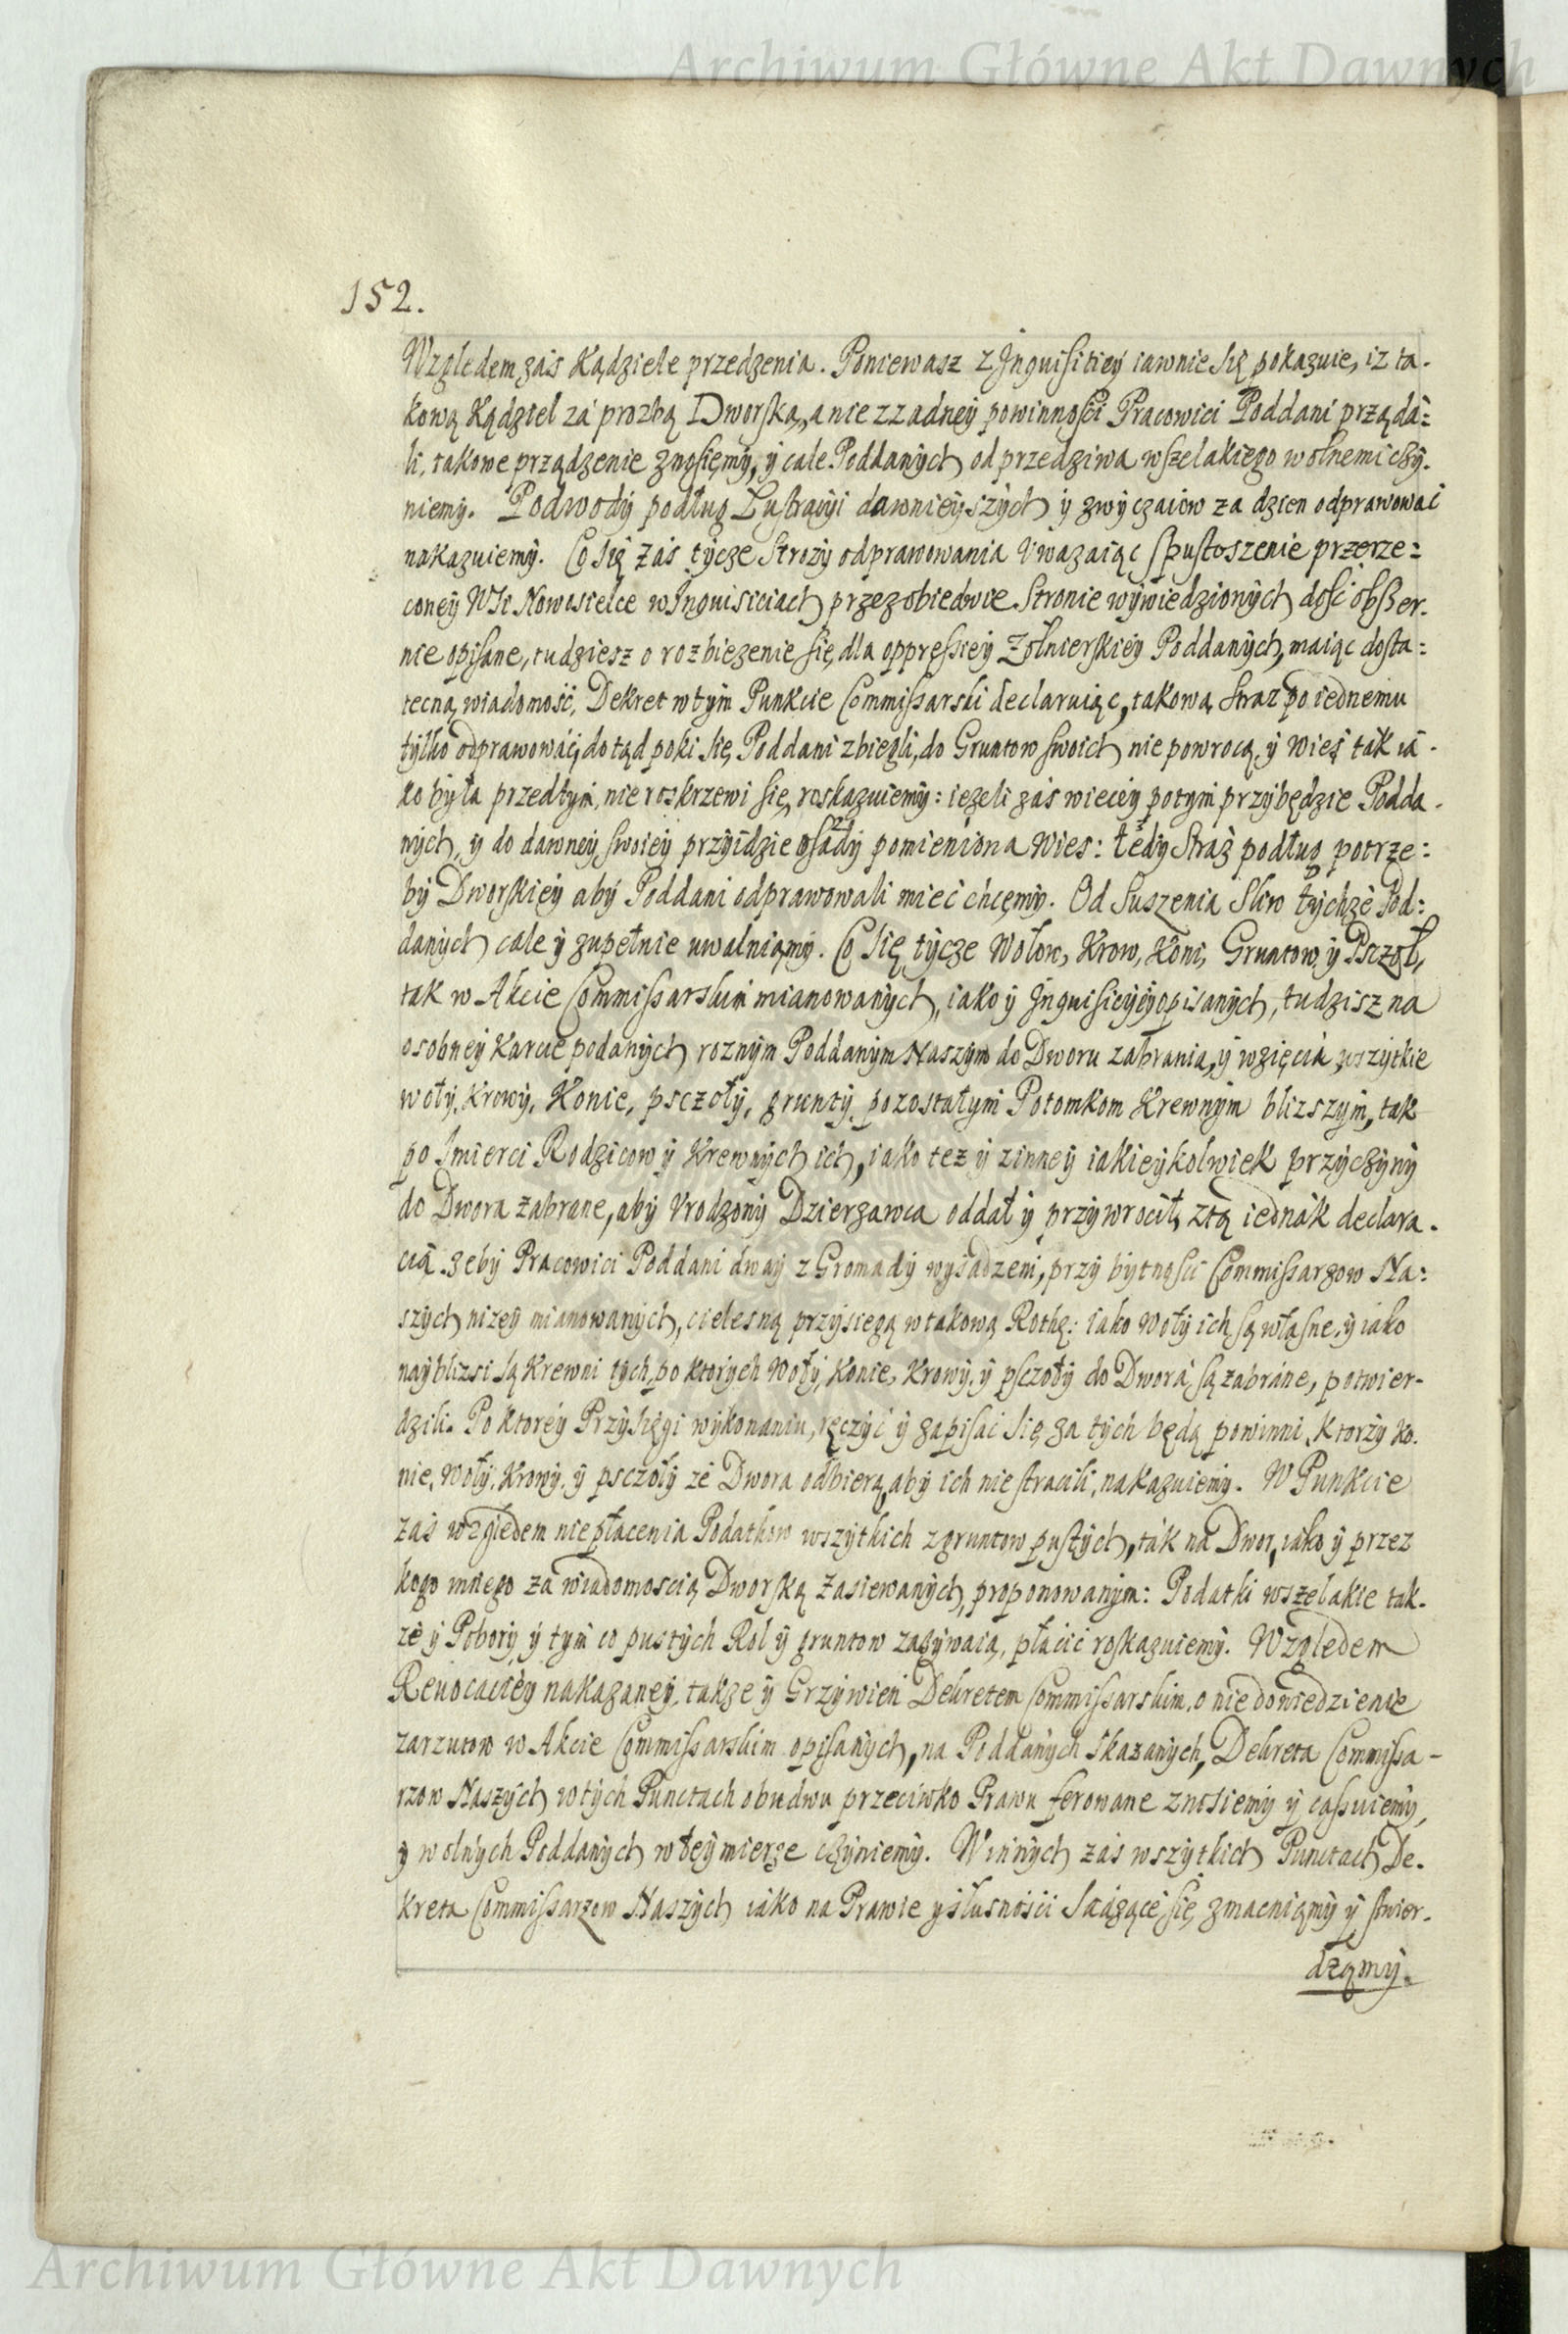 Archiwum Główne Akt Dawnych
152.
Względem zaś Kądziele przedzenia. Poniewasz z Jnquisitiey iawnie się pokazuie, iz ta-
kową Kądziel za prozbą Dworską, a nie z zadney powinności Pracowici Poddani prząda=
li, takowe prządzenie znosięmy, y cale Poddanych od przedziwa wszelakiego wolnemi czy-
niemy. Podwody podług Lustracyi dawnieyszych y zwyczaiow za dzien odprawować
nakazuiemy. Co się zaś tycze Strozy odprawowania Uwazaiąc spustoszenie przerze=
coney WSi Nowosielce w Inquisiciach przez obiedwie Stronie wywiedzionych dość obszer-
nie opisane, tudziesz o rozbiezenie się dla oppressiey Zołnierskiey Poddanych, maiąc dosta=
tecną wiadomość, Dekret w tym Punkcie Commissarski declaruiąc, takową Straz po iednemu
tylko odprawować, dotąd poki się Poddani zbiegli, do Gruntow swoich nie powrocą, y wieś tak ia-
ko była przedtym, nie roskrzewi się, roskazuiemy: iezeli zaś wiecey potym przybędzie Podda-
nych, y do dawney swoiey przyidzie osady pomieniona Wies: tedy Straz podług potrze=
by Dworskiey aby Poddani odprawowali mieć chcęmy. Od Suszenia Sliw tychże Pod=
danych cale y zupełnie uwalniąmy. Co się tycze Wołow, Krow, Koni, Gruntow y Pszzoł,
tak w Akcie Commissarskim mianowanych, iako y Jnquisicyiy opisanych, tudzisz na
osobney Karcie podanych roznym Poddanym Naszym do Dworu zabrania, y wzięcia, wszytkie
woły, Krowy, Konie, psczoły, grunty pozostałym Potomkom Krewnym blizszym, tak
po śmierci Rodzicow y Krewnych ich, iako tez y z inney iakieykolwiek przyczyny
do Dwora zabrane, aby Urodzony Dzierzawca oddał y przywrocił, z tą iednak declara-
cią. zeby Pracowici Poddani dway z Gromady wysadzeni, przy bytności Commissarzow Na=
szych nizey mianowanych, cielesną przysiegą w takową Rothę: iako Woły ich są własne, y iako
nayblizsi są Krewni tych, po ktorych Woły, Konie, Krowy, y psczoły do Dwora są zabrane, potwier-
dzili. Po ktorey Przysięgi wykonaniu, ręczyć y zapisać się za tych będą powinni, ktorzy Ko-
nie, Woły, Krowy, y psczoły ze Dwora odbierą, aby ich nie stracili, nakazuiemy. W Punkcie
zaś względem niepłacenia Podatkow wszytkich z gruntow pustych, tak na Dwor, iako y przez
kogo innego za wiadomoscią Dworską zasiewanych, proponowanym: Podatki wszelakie tak-
ze y Pobory y tym co pustych Rol y gruntow zazywaią, płacić roskazuiemy. Względem
Reuocaciey nakazaney, takze y Grzywien Dekretem Commissarskim, o nie dowiedzienie
zarzutow w Akcie Commissarskim opisanych, na Poddanych skazanych, Dekreta Commissa-
rzow Naszych w tych Punctach obudwu przeciwko Prawu ferowane znosiemy y cassuiemy,
y wolnych Poddanych w tey mierze czyniemy. W innych zaś wszytkich Punctach De-
kreta Commissarzow Naszych iako na Prawie y słusności sciągące się zmacniąmy y stwier-
dząmy.
Archiwum Główne Akt Dawnych